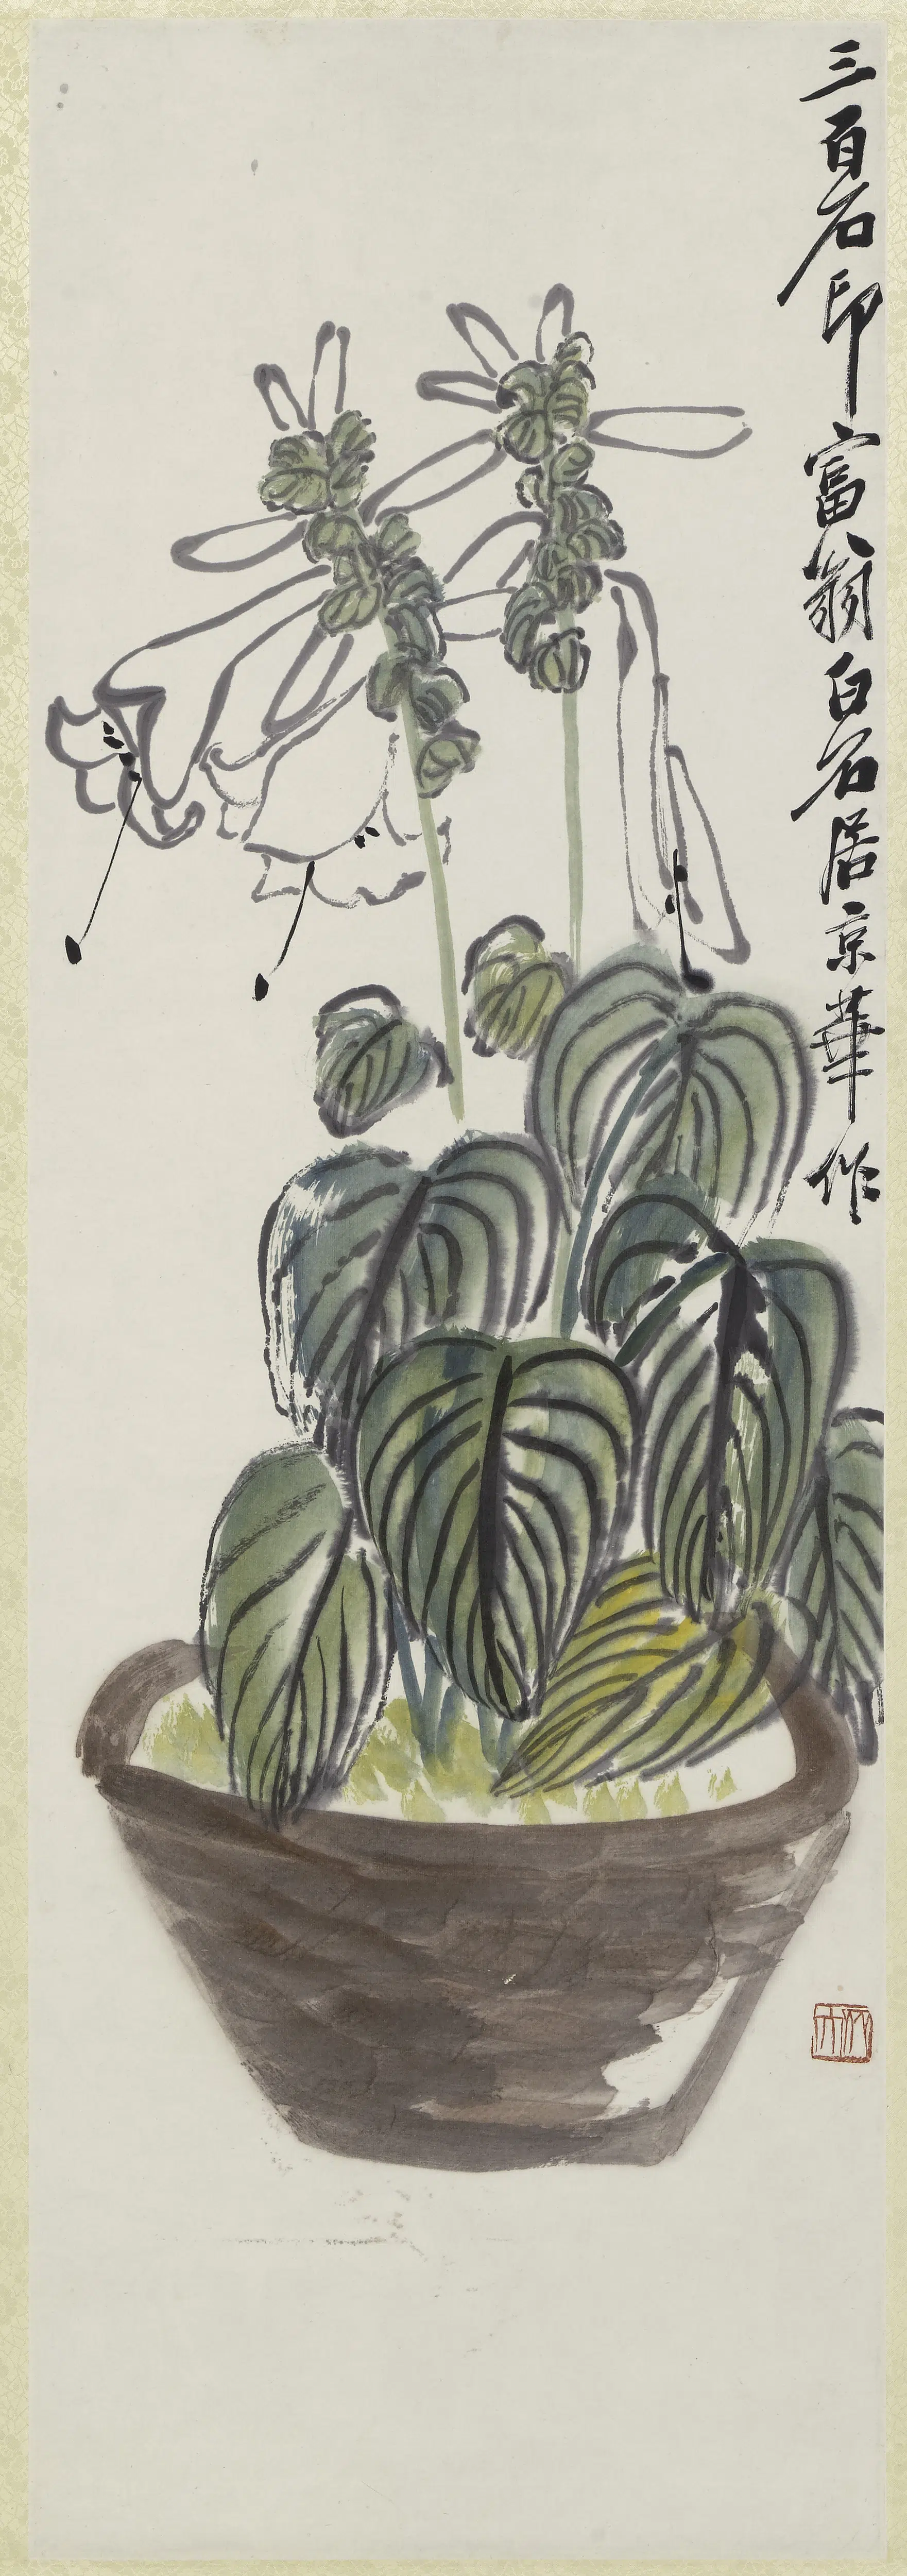 三百石印富翁白石居京華作
木人